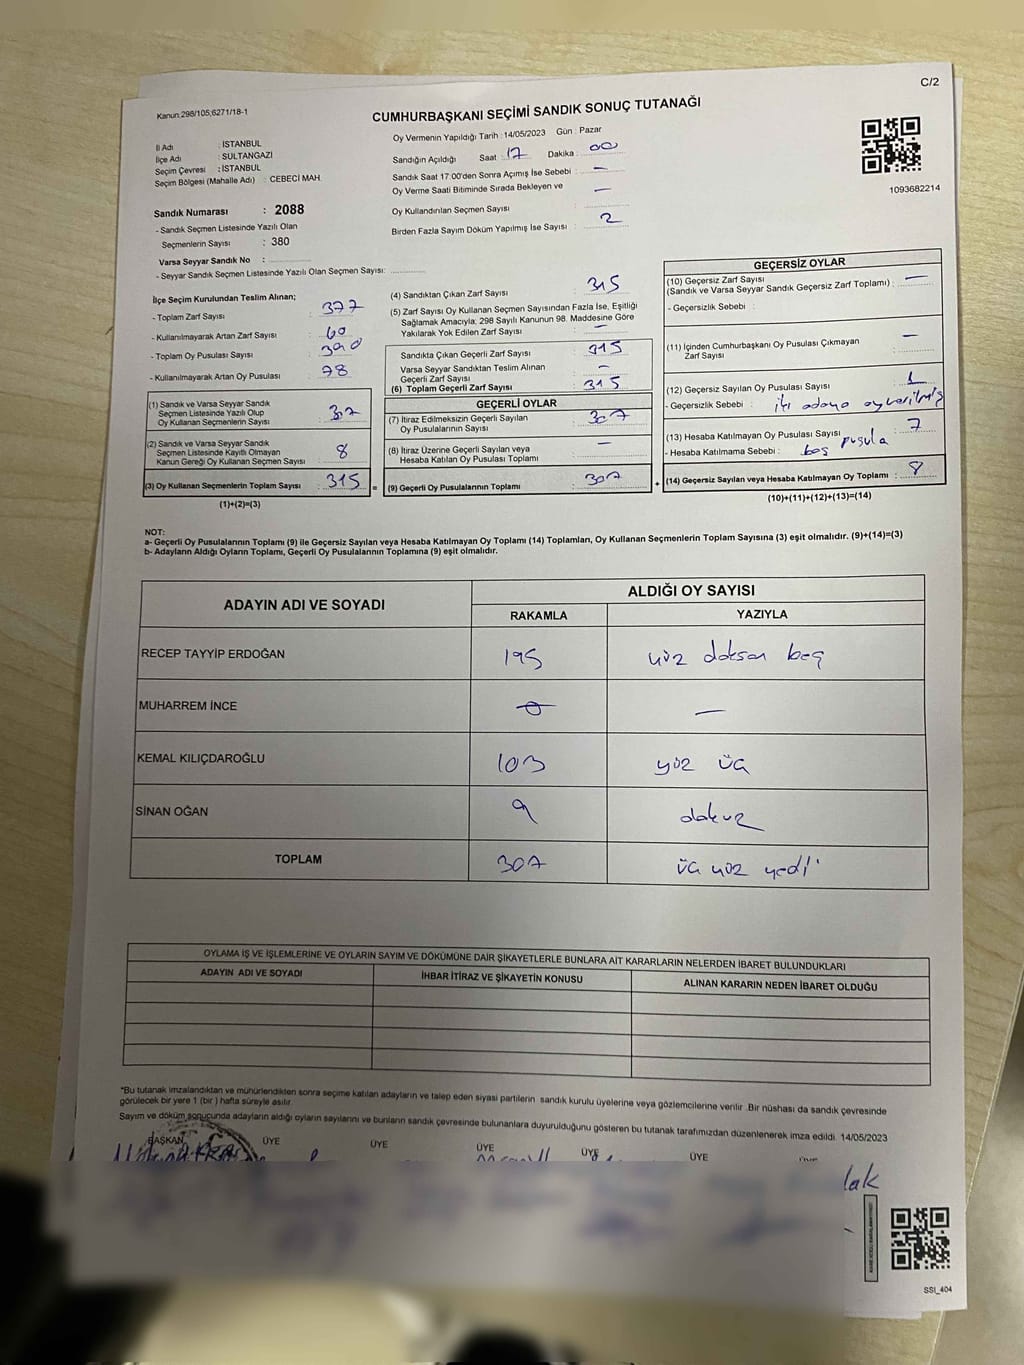 C/2
Kanun:298/105;6271/18-1
CUMHURBAŞKANI SEÇİMİ SANDIK SONUÇ TUTANAĞI
İl Adı : İSTANBUL
İlçe Adı : SULTANGAZİ
Seçim Çevresi : İSTANBUL
Seçim Bölgesi (Mahalle Adı) : CEBECİ MAH.
Sandık Numarası : 2088
- Sandık Seçmen Listesinde Yazılı Olan
Seçmenlerin Sayısı : 380
Varsa Seyyar Sandık No :
- Seyyar Sandık Seçmen Listesinde Yazılı Olan Seçmen Sayısı:
Oy Vermenin Yapıldığı Tarih : 14/05/2023 Gün : Pazar
Sandığın Açıldığı Saat : 17 Dakika : 00
Sandık Saat 17:00'den Sonra Açımış İse Sebebi : —
Oy Verme Saati Bitiminde Sırada Bekleyen ve —
Oy Kullandırılan Seçmen Sayısı :
Birden Fazla Sayım Döküm Yapılmış İse Sayısı : 2
1093682214
İlçe Seçim Kurulundan Teslim Alınan;
- Toplam Zarf Sayısı : 377
- Kullanılmayarak Artan Zarf Sayısı : 60
- Toplam Oy Pusulası Sayısı : 390
- Kullanılmayarak Artan Oy Pusulası : 78
(1) Sandık ve Varsa Seyyar Sandık
Seçmen Listesinde Yazılı Olup
Oy Kullanan Seçmenlerin Sayısı : 307
(2) Sandık ve Varsa Seyyar Sandık
Seçmen Listesinde Kayıtlı Olmayan
Kanun Gereği Oy Kullanan Seçmen Sayısı : 8
(3) Oy Kullanan Seçmenlerin Toplam Sayısı : 315 =
(1)+(2)=(3)
(4) Sandıktan Çıkan Zarf Sayısı : 315
(5) Zarf Sayısı Oy Kullanan Seçmen Sayısından Fazla İse, Eşitliği
Sağlamak Amacıyla; 298 Sayılı Kanunun 98. Maddesine Göre
Yakılarak Yok Edilen Zarf Sayısı : —
Sandıkta Çıkan Geçerli Zarf Sayısı : 315
Varsa Seyyar Sandıktan Teslim Alınan
Geçerli Zarf Sayısı : —
(6) Toplam Geçerli Zarf Sayısı : 315
GEÇERLİ OYLAR
(7) İtiraz Edilmeksizin Geçerli Sayılan
Oy Pusulalarının Sayısı : 307
(8) İtiraz Üzerine Geçerli Sayılan veya
Hesaba Katılan Oy Pusulası Toplamı : —
(9) Geçerli Oy Pusulalarının Toplamı : 307 +
GEÇERSİZ OYLAR
(10) Geçersiz Zarf Sayısı
(Sandık ve Varsa Seyyar Sandık Geçersiz Zarf Toplamı) : —
- Geçersizlik Sebebi :
(11) İçinden Cumhurbaşkanı Oy Pusulası Çıkmayan
Zarf Sayısı : —
(12) Geçersiz Sayılan Oy Pusulası Sayısı : 1
- Geçersizlik Sebebi : iki adaya oy verilmiş
(13) Hesaba Katılmayan Oy Pusulası Sayısı : 7
- Hesaba Katılmama Sebebi : boş pusula
(14) Geçersiz Sayılan veya Hesaba Katılmayan Oy Toplamı : 8
(10)+(11)+(12)+(13)=(14)
NOT:
a- Geçerli Oy Pusulalarının Toplamı (9) ile Geçersiz Sayılan veya Hesaba Katılmayan Oy Toplamı (14) Toplamları, Oy Kullanan Seçmenlerin Toplam Sayısına (3) eşit olmalıdır. (9)+(14)=(3)
b- Adayların Aldığı Oyların Toplamı, Geçerli Oy Pusulalarının Toplamına (9) eşit olmalıdır.
ADAYIN ADI VE SOYADI
ALDIĞI OY SAYISI
RAKAMLA YAZIYLA
RECEP TAYYİP ERDOĞAN 195 yüz doksan beş
MUHARREM İNCE 0 —
KEMAL KILIÇDAROĞLU 103 yüz üç
SİNAN OĞAN 9 dokuz
TOPLAM 307 üç yüz yedi
OYLAMA İŞ VE İŞLEMLERİNE VE OYLARIN SAYIM VE DÖKÜMÜNE DAİR ŞİKAYETLERLE BUNLARA AİT KARARLARIN NELERDEN İBARET BULUNDUKLARI
ADAYIN ADI VE SOYADI İHBAR İTİRAZ VE ŞİKAYETİN KONUSU ALINAN KARARIN NEDEN İBARET OLDUĞU
*Bu tutanak imzalandıktan ve mühürlendikten sonra seçime katılan adayların ve talep eden siyasi partilerin sandık kurulu üyelerine veya gözlemcilerine verilir .Bir nüshası da sandık çevresinde
görülecek bir yere 1 (bir ) hafta süreyle asılır.
Sayım ve döküm sonucunda adayların aldığı oyların sayılarını ve bunların sandık çevresinde bulunanlara duyurulduğunu gösteren bu tutanak tarafımızdan düzenlenerek imza edildi. 14/05/2023
BAŞKAN ÜYE ÜYE ÜYE ÜYE ÜYE
lak
SSI_404